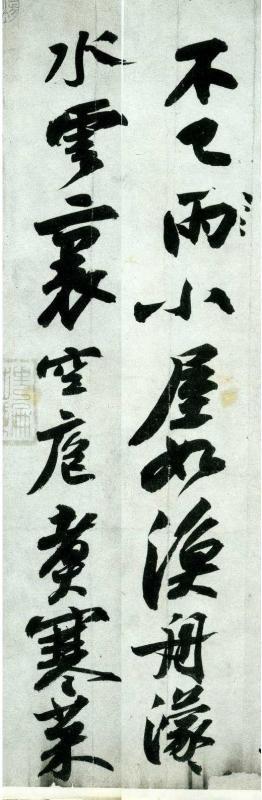 不已雨小屋如漁舟濛
水雲裏空庖煑寒菜